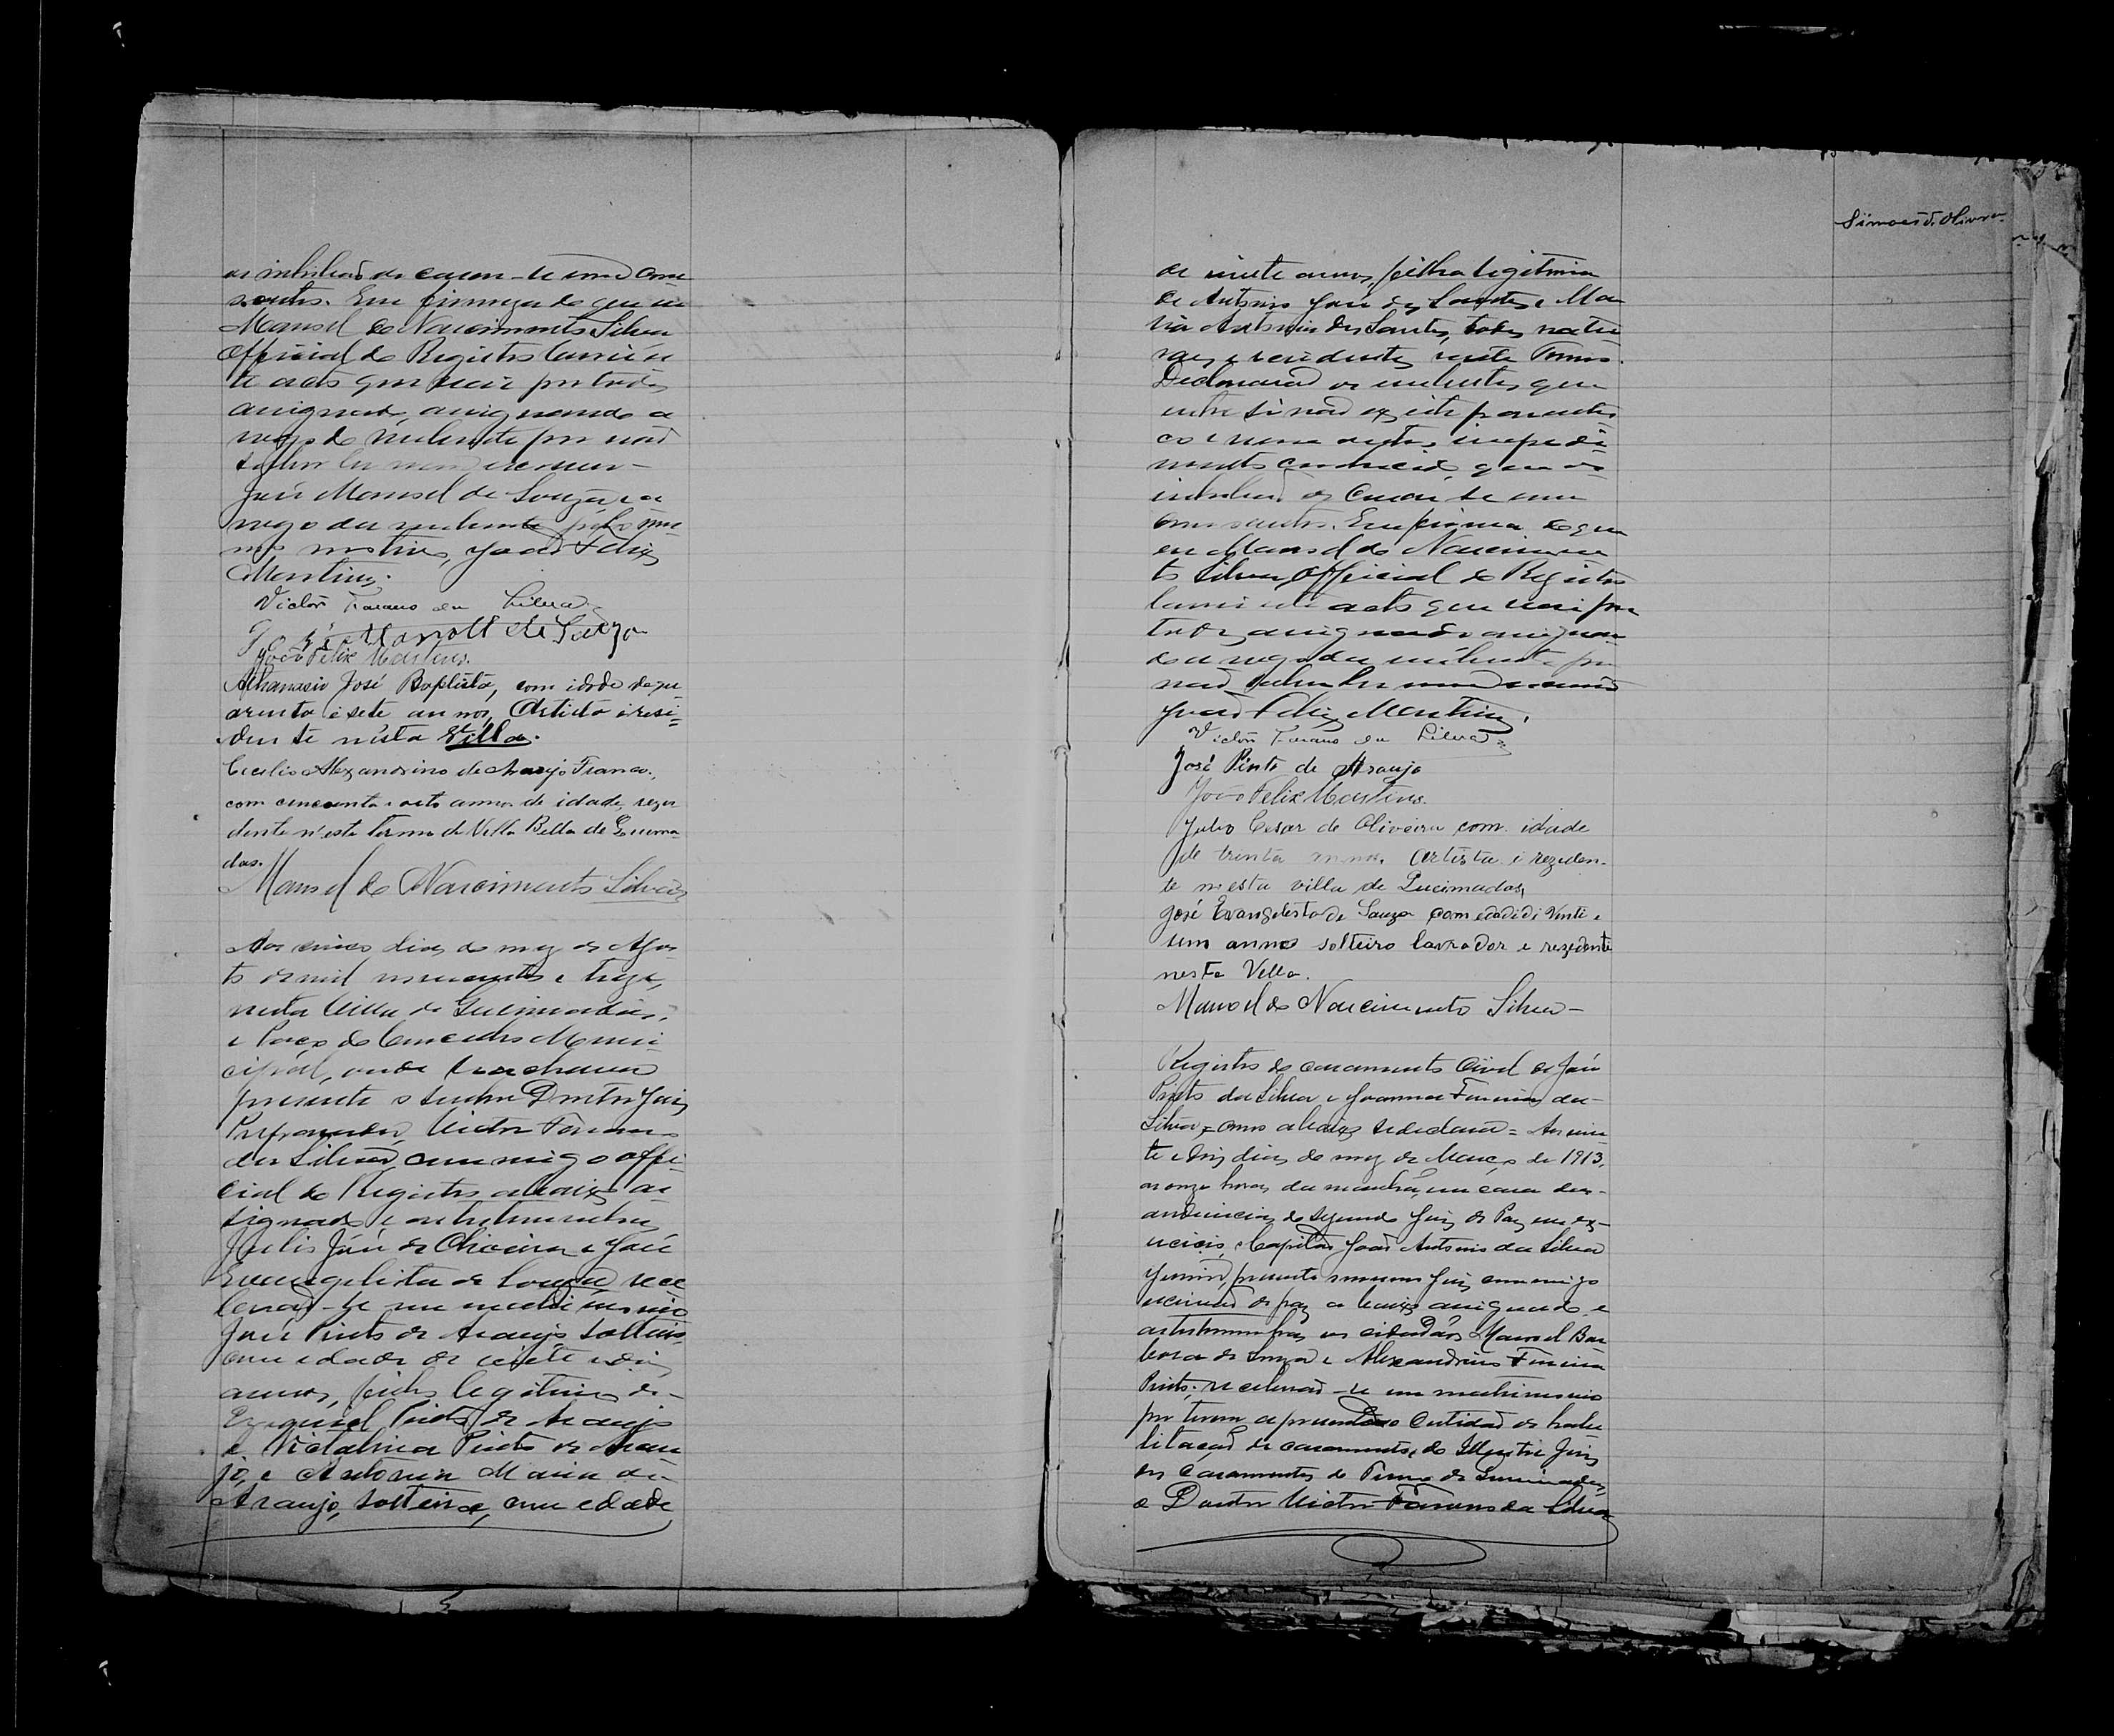 os inhibão de casar-se um com
outro. Em firmeza do que eu
Manoel do Nascimento Silva
Official do Registro lavrei es
te acto que vai por todos
assignado, assignando a
rogo do nubente por não
saber ler nem escrever
José Manoel de Souza, e a
rogo da nubente pelo mes
mo motivo, João Felix
Martins.
Victor Farano da Silva
José Manoel de Souza
João Felix Martins.
Athanasio José Baptista, com idade de qu
arenta e sete annos, Artista e resi=
dente nésta Villa.
Cecilio Alexandrino de Araujo Franco,
com cincoenta e oito annos de idade, rezi
dente n'este termo de Villa Bella de Queima
das.
Manoel do Nascimento Silva
Aos cinco dias do mez de Agos
to de mil novecentos e treze,
nesta Villa de Queimadas,
e Paço do Concelho Muni
cipal, onde se achava
presente o senhor Doutor Juiz
Preparador, Victor Farano
da Silva, commigo offi
cial do Registro abaixo as
signado e as testemunhas
Julio José de Oliveira e José
Evangelista de Souza, rece
berão-se em matrimonio
José Pinto de Araujo, solteiro,
com edade de vinte e dois
annos, filho legitimo de
Ezequiel Pinto de Araujo
e Victalina Pinto de Arau
jo, e Antonia Maria de
Araujo, solteira, com edade
Simões de Oliveira
de vinte annos, filha legitima
de Antonio José dos Santos e Ma
ria Antonia dos Santos, todos natu
raes e residentes neste Termo.
Declararão os nubentes que
entre si não existe parentes
co e nem outro impedi
mento conhecido que os
inhibão de casar-se um
com outro. Em firmeza do que
eu Manoel do Nascimen
to Silva, Official do Registro
lavrei este acto que vai por
todos assignado assignan
do a rogo da nubente por
não saber ler nem escrever
João Felix Martins.
Victor Farano da Silva
José Pinto de Araujo
João Felix Martins.
Julio Cesar de Oliveira com idade
de trinta annos, artista e reziden-
te n'esta villa de Queimadas,
José Evangelista de Souza com edadi di Vinti e
um annos solteiro lavrador e rezidente
nesta Villa.
Manoel do Nascimento Silva
Registro do casamento Civil de José
Pinto da Silva e Joanna Ferreira da
Silva, como abaixo se declara = Aos vin
te e dois dias do mez de Março de 1913,
as onze horas da manhã, em casa das
audiencias do segundo Juiz de Paz em ex-
ercicio, Capitão João Antonio da Silva
Junior, presente o mesmo Juiz, commigo
escrivão de paz abaixo assignado e
as testemunhas os cidadãos Manoel Bar
bosa de Souza e Alexandrino Ferreira
Pinto; receberão-se em matrimonio
por terem apresentado Certidão de habi
litação de casamento, do Illustre Juiz
dos Casamentos do Termo de Queimadas,
o Doutor Victor Farano da Silva